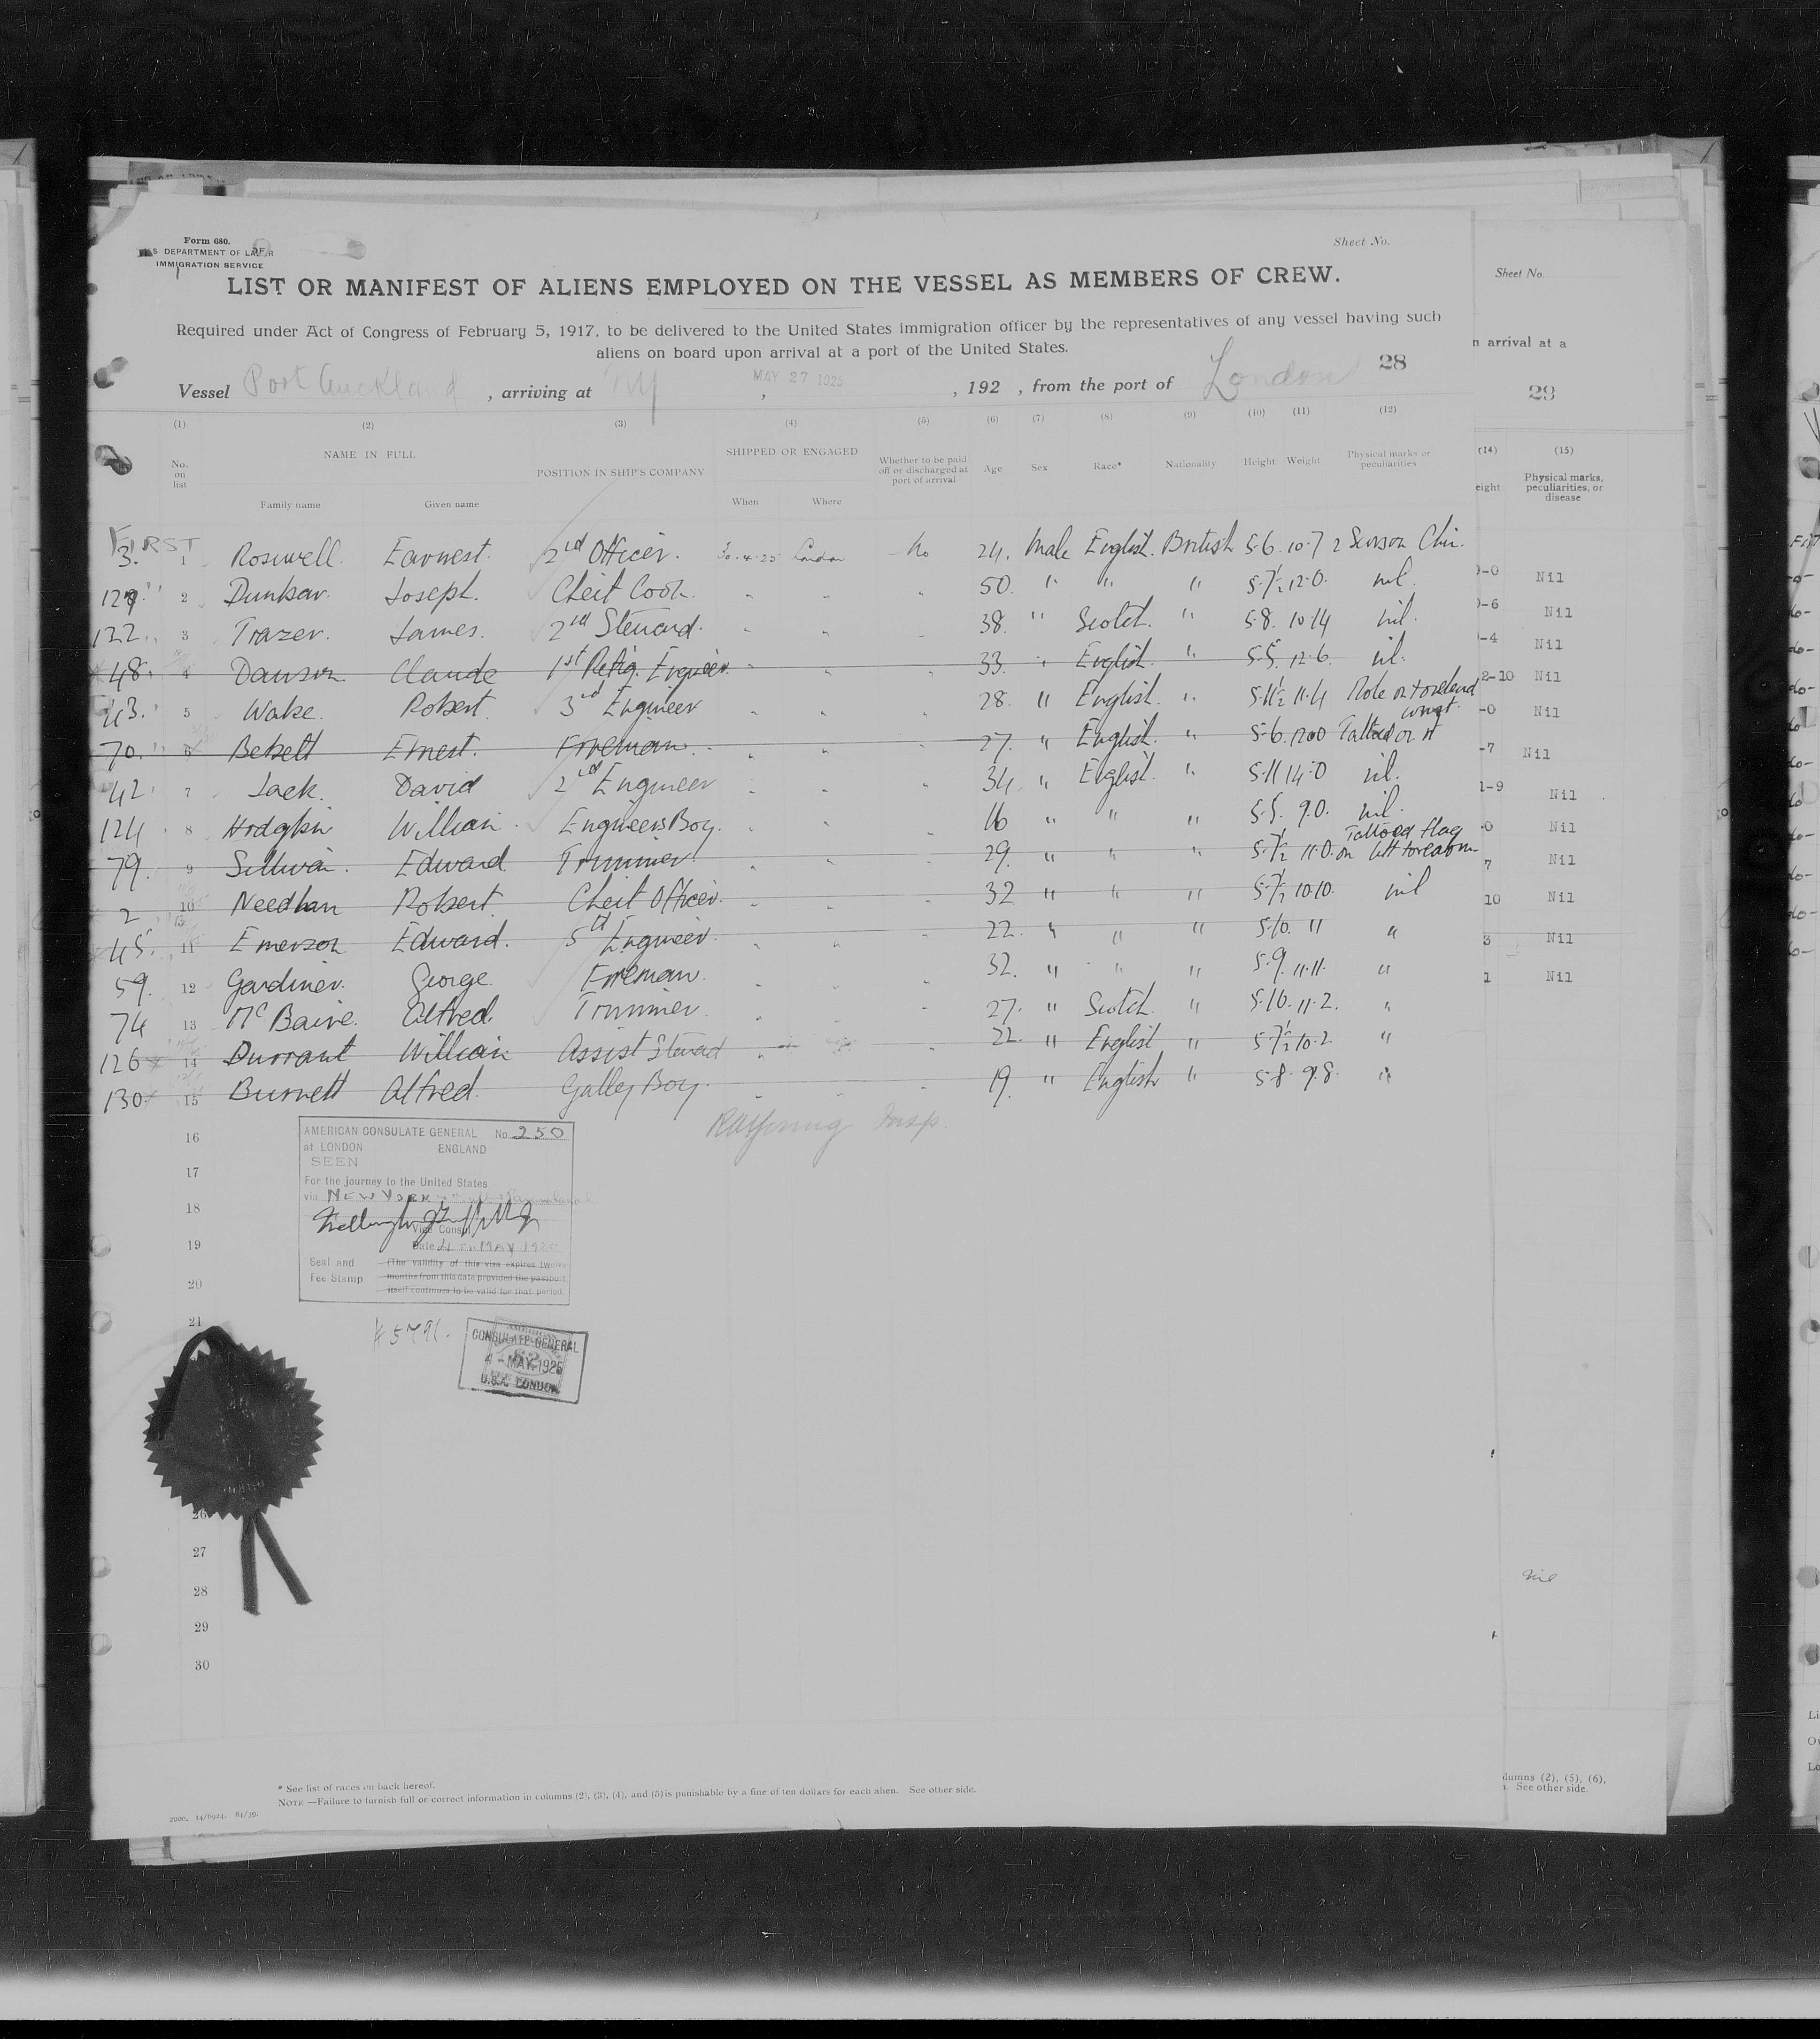 Form 680.
U.S. DEPARTMENT OF LABOR
IMMIGRATION SERVICE
Sheet No.
LIST OR MANIFEST OF ALIENS EMPLOYED ON THE VESSEL AS MEMBERS OF CREW.
Required under Act of Congress of February 5, 1917, to be delivered to the United States immigration officer by the representatives of any vessel having such
aliens on board upon arrival at a port of the United States.
28
Vessel Port Auckland, arriving at NY, MAY 27 1925, 192 , from the port of London
(1) (2) (3) (4) (5) (6) (7) (8) (9) (10) (11) (12)
No. on list NAME IN FULL POSITION IN SHIP'S COMPANY SHIPPED OR ENGAGED Whether to be paid off or discharged at port of arrival Age Sex Race* Nationality Height Weight Physical marks or peculiarities
Family name Given name When Where
FIRST
3. 1 Roswell. Earnest. 2nd Officer. 30.4.25 London No 24. Male English. British 5.6. 10.7 2 Chin.
129 " 2 Dunbar. Joseph. Cheif Cook " " " 50. " " " 5.7½ 12.0. nil.
122. 3 Frazer. James. 2nd Steward. " " " 38. " Scotch. " 5.8. 10.14 nil.
48. 4 Dawson Claude 1st Refrig. Engineer " " 33. " English. " 5.5. 12.6. nil.
43. 5 Wake. Robert. 3rd Engineer " " " 28. " English. " 5.11½ 11.4 Mole on forehead
70. " 6 Ernest. Fireman. " " " 27. " English. " 5.6. 12.00 Tattooed on
42 7 Jack. David 2nd Engineer " " " 34. " English. " 5.11 14.0 nil.
124 8 Hodgkin William. Engineers Boy. " " " 16 " " " 5.5. 9.0. nil.
79. 9 Sullivan. Edward Trimmer. " " " 29. " " " 5.7½ 11.0. Tattooed flag on left forearm
2 10 Needham Robert Cheif Officer. " " " 32 " " " 5.7½ 10.10. nil
45. 11 Emerson Edward. 5th Engineer. " " " 22. " " " 5.10. 11 "
59. 12 Gardiner. George. Fireman. " " " 32. " " " 5.9. 11.11. "
74 13 McBaine. Alfred. Trimmer. " " " 27. " Scotch. " 5.10. 11.2. "
126 14 Durrant William Assist Steward " " " 22. " English " 5.7½ 10.2 "
130 15 Burnett Alfred. Galley Boy. " " " 19. " English " 5.8. 9.8. "
16
17
18
19
20
21
26
27
28
29
30
AMERICAN CONSULATE GENERAL No. 250
at LONDON ENGLAND
SEEN
For the journey to the United States
via NEW YORK
Vice Consul
Date 4 TH MAY 1925
Seal and Fee Stamp
(The validity of this visa expires twelve
months from this date provided the passport
itself continues to be valid for that period.
Insp.
CONSULATE-GENERAL
4 - MAY. 1925
U.S.A. LONDON
* See list of races on back hereof.
NOTE.—Failure to furnish full or correct information in columns (2), (3), (4), and (5) is punishable by a fine of ten dollars for each alien. See other side.
2000. 14/6924. 84/39.
Sheet No.
n arrival at a
29
(14) (15)
eight Physical marks, peculiarities, or disease
-0 Nil
-6 Nil
-4 Nil
2-10 Nil
-0 Nil
-7 Nil
1-9 Nil
0 Nil
7 Nil
10 Nil
3 Nil
1 Nil
Nil
lumns (2), (5), (6),
See other side.